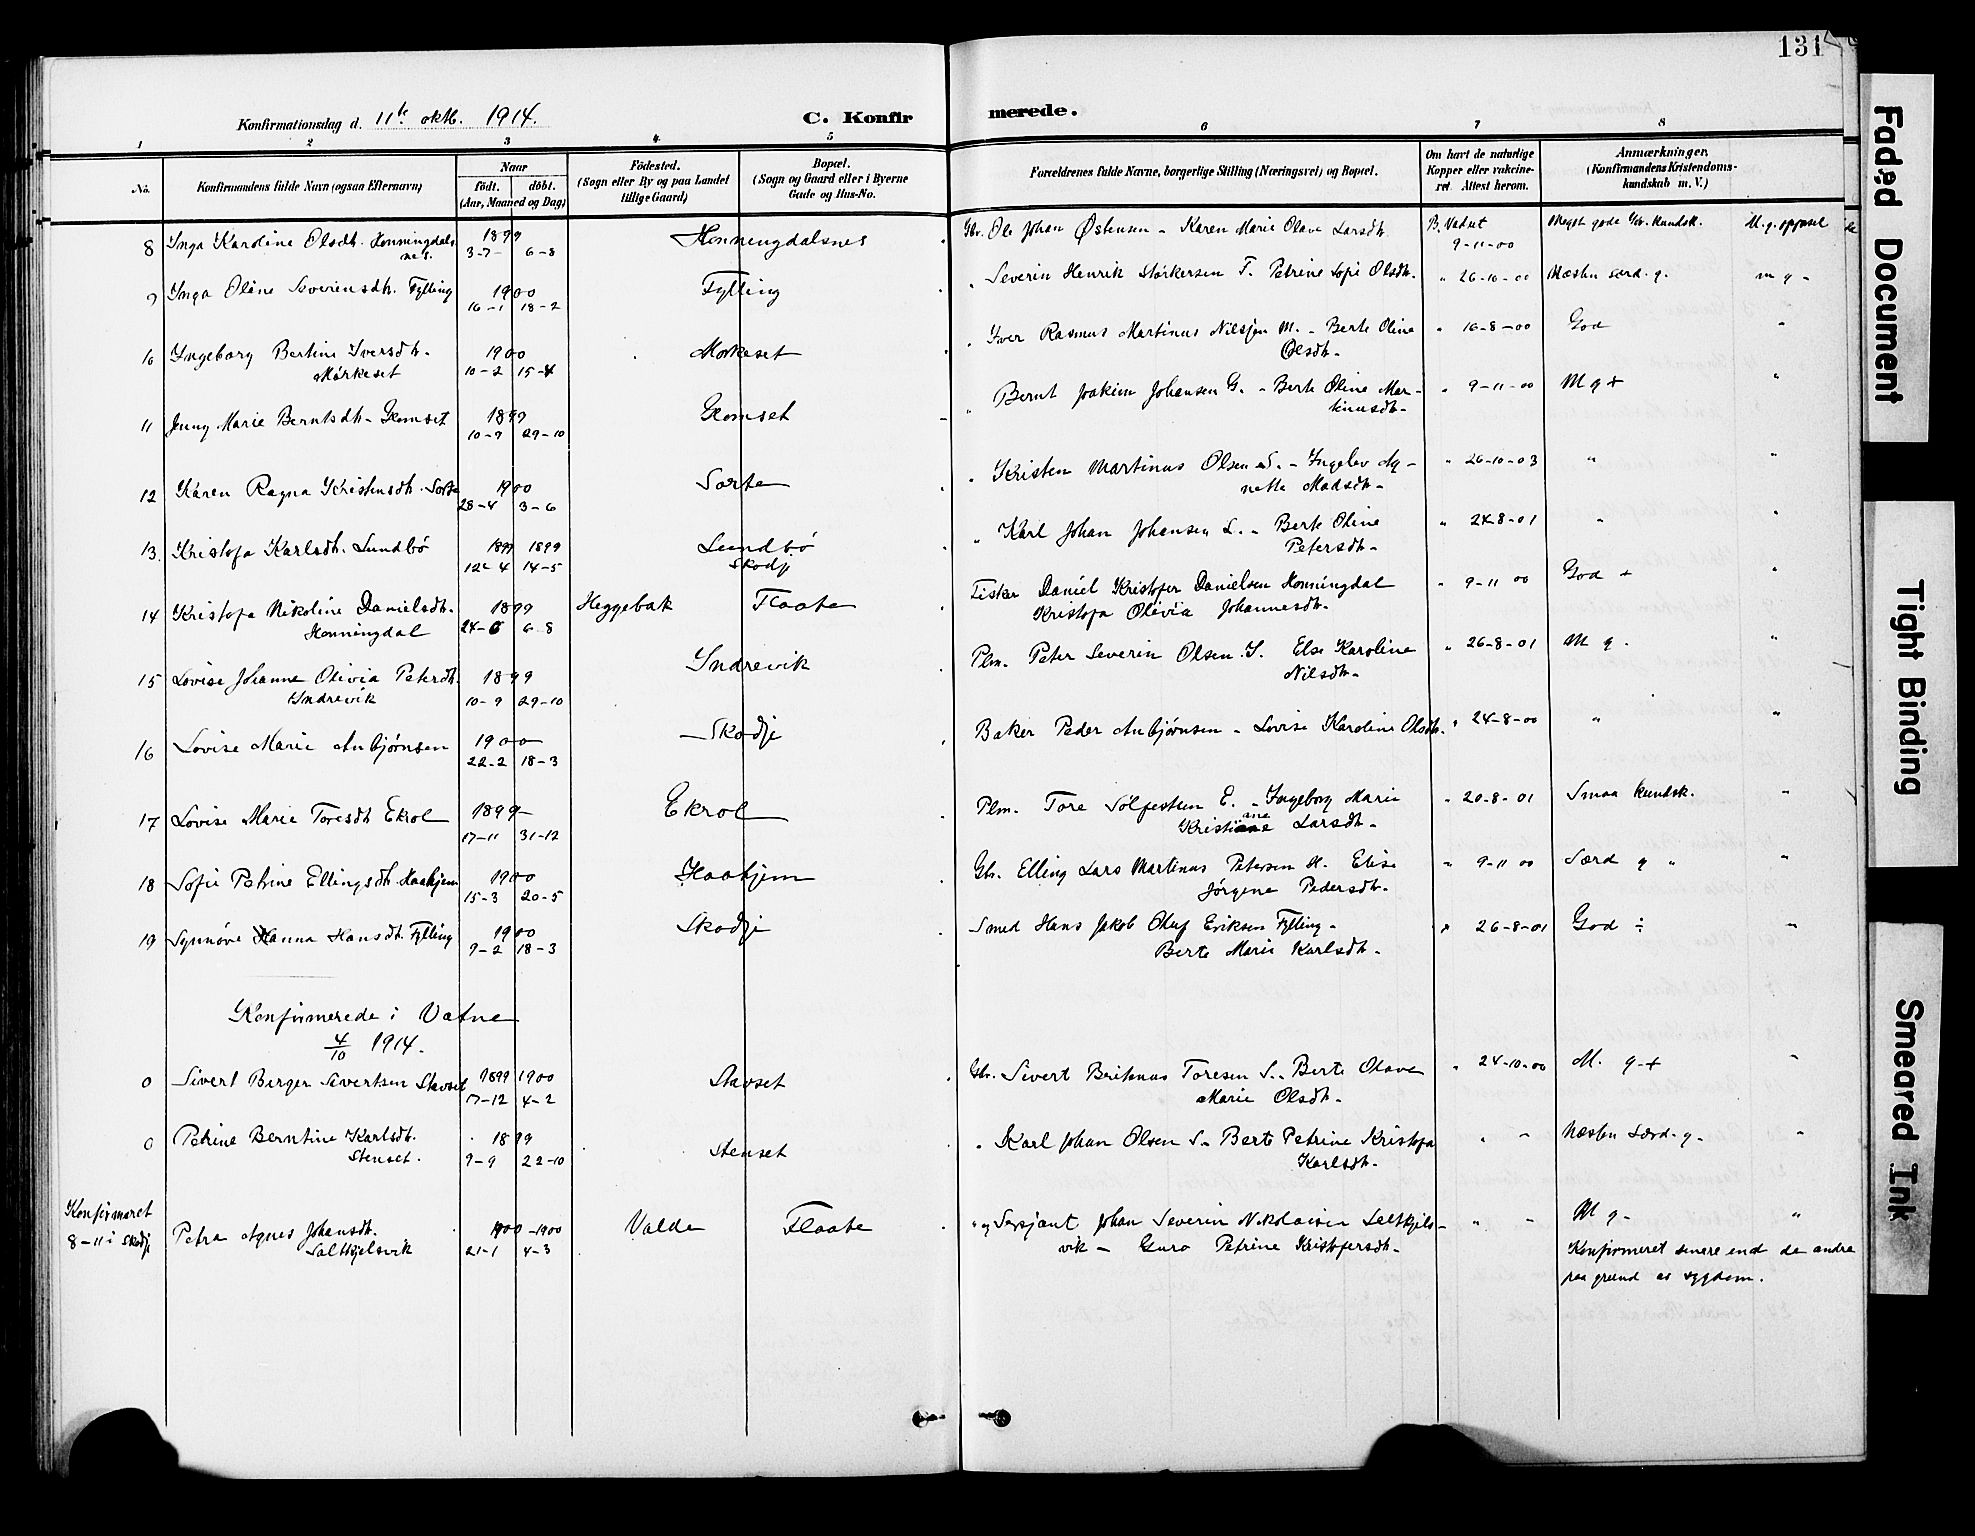 131
Konfirmationsdag d. 11te oktb. 1914. C. Konfirmerede.
1 2 3 4 5 6 7 8
No. Konfirmandens fulde Navn (ogsaa Efternavn) Naar födt. döbt. (Aar, Maaned og Dag) Födested. (Sogn eller By og paa Landet tillige Gaard) Bopæl. (Sogn og Gaard eller i Byerne Gade og Hus-No. Forældrenes fulde Navne, borgerlige Stilling (Næringsvei) og Bopæl. Om havt de naturlige Kopper eller vakcineret. Attest herom. Anmærkninger. (Konfirmandens Kristendomskundskab m. V.)
8 Inga Karoline Olsdtr. Honningdalsnes. 1899 3-7- 6-8 Honningdalsnes Gbr. Ole Johan Østensen - Karen Marie Olave Larsdtr. B. Vadset 9-11-00 Meget gode Chr. kundsk. M. g. opførsel
9 Inga Oline Severinsdtr. Fylling 1900 16-1 18-2 Fylling " Severin Henrik Størkersen F. Petrine Sofie Olsdtr. " 26-10-00 Næsten særd. g. m g -
10 Ingeborg Bertine Iversdtr. Mørkeset 1900 10-2 15-4 Mørkeset " Iver Rasmus Martinus Nilsen M. - Berte Oline Olsdtr. " 16-8-00 God "
11 Jenny Marie Berntsdtr. Gomset 1899 10-9 29-10 Gomset " Bernt Joakim Johansen G. - Berte Oline Martinusdtr. " 9-11-00 M g + "
12 Karen Ragna Kristensdtr. Sorte 1900 28-4 3-6 Sorte " Kristen Martinus Olsen S. - Ingelev Agnette Madsdtr. " 26-10-03 " "
13. Kristofa Karlsdtr. Lundbø 1899 1899 12-4 14-5 Lundbø Skodje " Karl Johan Johansen L. - Berte Oline Petersdtr. " 24-8-01 " "
14 Kristofa Nikoline Danielsdtr. Honningdal 1899 24-6 6-8 Heggebak Flaate Fisker Daniel Kristofer Danielsen Honningdal Kristofa Olivia Johannesdtr. " 9-11 00 God + "
15 Lovise Johanne Olivia Petersdtr. Indrevik 1899 10-9 29-10 Indrevik Plm. Peter Severin Olsen I. Else Karoline Nilsdtr. " 26-8-01 M g. "
16 Lovise Marie Aubjørnsen 1900 22-2 18-3 Skodje Baker Peder Aubjørnsen - Lovise Karoline Olsdtr. " 24-8-00 " "
17 Lovise Marie Toresdtr Ekrol 1899 17-11 31-12 Ekrol Plm. Tore Sølfestsen E. - Ingeborg Marie Kristiane Larsdtr. " 20-8-01 Smaa kundsk. "
18 Sofie Petrine Ellingsdtr. Haahjem 1900 15-3 20-5 Haahjem Gbr. Elling Lars Martinus Petersen H. Elise Jørgine Pedersdtr. " 9-11 00 Særd g " "
19 Synnøve Hanna Hansdtr. Fylling 1900 9-2 18-3 Skodje Smed Hans Jakob Oluf Eriksen Fylling - Berte Marie Karlsdtr. " 26-8-01 God ÷ "
Konfirmerede i Vatne
4/10 1914.
0 Sivert Birger Sivertsen Slavset 1899 1900 17-12 4-2 Slavset Gbr. Sivert Britenus Toresen S. - Berte Olave Marie Olsdtr. " 24-10-00 M. g + "
0 Petrine Berntine Karlsdtr. Stenset. 1899 9-9 22-10 Stenset " Karl Johan Olsen S. - Berte Petrine Kristofa Karlsdtr. " " Næsten Særd. g. "
Konfirmeret 8-11 i Skodje Petra Agnes Johansdtr. Saltkjelsvik 1900 -1900 21-1 4-3 Valde Flaate " og Sersjant Johan Severin Nikolaisen Saltkjelsvik - Guro Petrine Kristofersdtr. " " M g - "
Konfirmeret senere end de andre
paa grund av sygdom.
Faded Document
Tight Binding
Smeared Ink